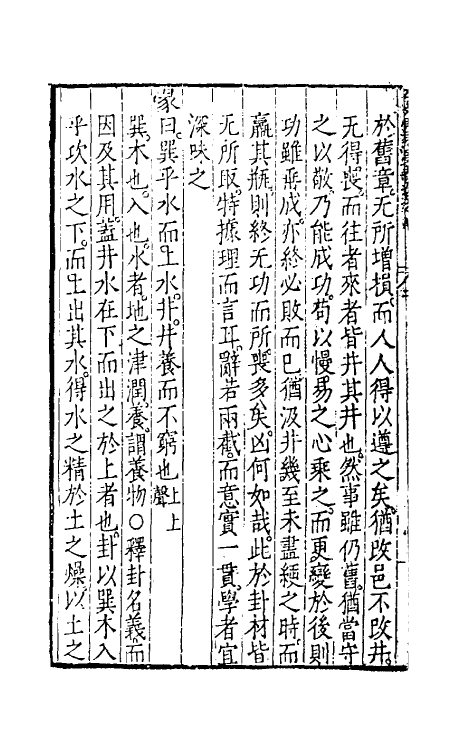 於舊章。无所增損。而人人得以遵之矣。猶改邑不改井。
无得喪。而往者來者皆井其井也。然事雖仍舊。猶當守
之以敬。乃能成功。苟以慢易之心乘之。而更變於後則
功雖垂成。亦終必敗而已猶汲井幾至未盡綆之時。而
羸其瓶。則終无功而所喪多矣。凶何如哉。此於卦材皆
无所取。特據理而言耳。辭若兩截。而意實一貫。學者宜
深味之
彖曰。巽乎水而上水。井。井養而不窮也上上聲
巽。木也。入也。水者。地之津潤。養。謂養物○釋卦名義。而
因及其用。蓋井水在下而出之於上者也。卦以巽木入
乎坎水之下。而上出其水。得水之精於土之燥。以土之